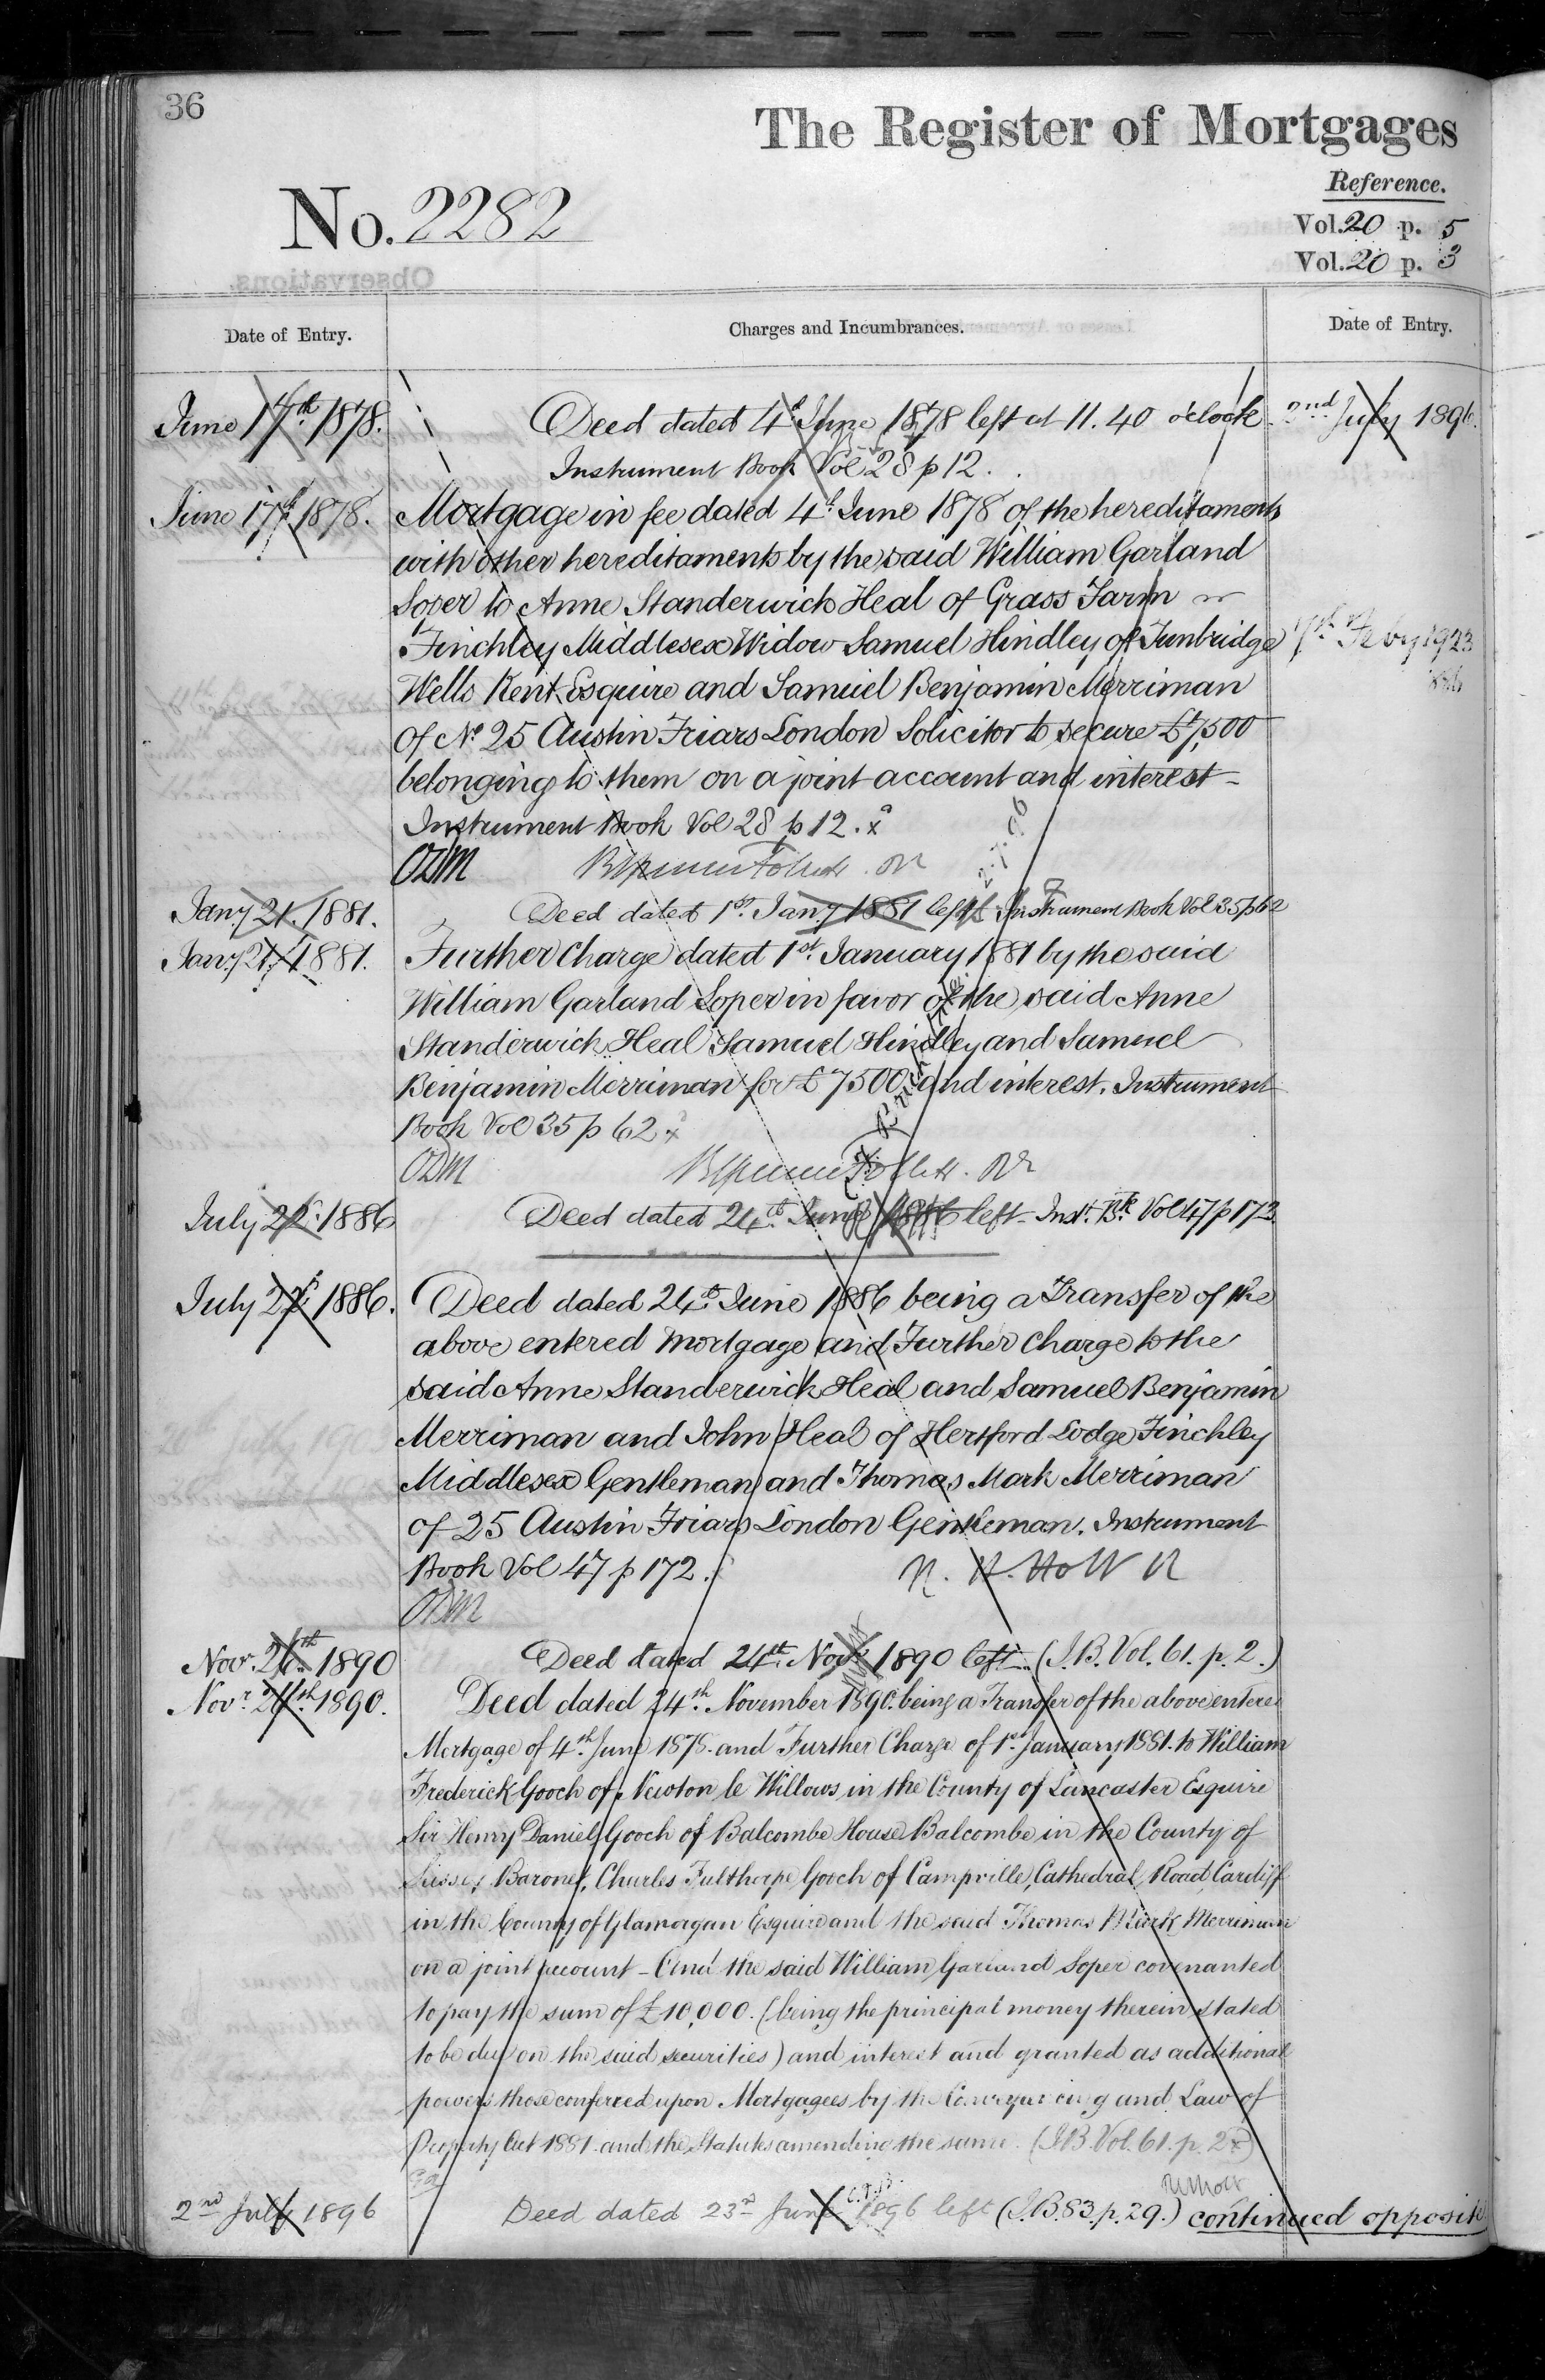 36
The Register of Mortgages
Reference.
No. 2282
Vol. 20 p. 5
Vol. 20 p. 3
Date of Entry.
Charges and Incumbrances.
Date of Entry.
June 17th 1878.
Deed dated 4th June 1878 left at 11.40 o'clock
2nd July 1896.
Instrument Book Vol 28 p 12.
June 17th 1878.
Mortgage in fee dated 4th June 1878 of the hereditaments
with other hereditaments by the said William Garland
Soper to Anne Standerwick Heal of Grass Farm
Finchley Middlesex Widow Samuel Hindley of Tunbridge
Feby 1923
Wells Kent Esquire and Samuel Benjamin Merriman
of No 25 Austin Friars London Solicitor to secure £7,500
belonging to them on a joint account and interest
Instrument Book Vol 28 p 12. x
ODM
Jany 21. 1881.
Deed dated 1st Jany 1881 left Instrument Book Vol 35 p 62
Jany 21st 1881.
Further Charge dated 1st January 1881 by the said
William Garland Soper in favor of the said Anne
Standerwick Heal Samuel Hindley and Samuel
Benjamin Merriman for £7500 and interest. Instrument
Book Vol 35 p 62 x
ODM
July 1886
Deed dated 24th June 1886 left Inst. Bk Vol 47 p 172
July 1886.
Deed dated 24th June 1886 being a Transfer of the
above entered mortgage and Further Charge to the
said Anne Standerwick Heal and Samuel Benjamin
Merriman and John Heal of Hertford Lodge Finchley
Middlesex Gentleman and Thomas Mark Merriman
of 25 Austin Friars London Gentleman. Instrument
Book Vol 47 p 172.
ODM
Novr. 26th 1890
Deed dated 24th Novr 1890 left. (I.B. Vol. 61. p. 2.)
Novr. 26th 1890.
Deed dated 24th November 1890. being a Transfer of the above entered
Mortgage of 4th June 1878. and Further Charge of 1st January 1881. to William
Frederick Gooch of Newton le Willows in the County of Lancaster Esquire
Sir Henry Daniel Gooch of Balcombe House Balcombe in the County of
Sussex Baronet, Charles Fulthorpe Gooch of Campville, Cathedral Road Cardiff
in the County of Glamorgan Esquire and the said Thomas Mark Merriman
on a joint account - And the said William Garland Soper covenanted
to pay the sum of £10,000. (being the principal money therein stated
to be due on the said securities) and interest and granted as additional
powers those conferred upon Mortgagees by the Conveyancing and Law of
Property Act 1881. and the Statutes amending the same. (I.B. Vol. 61. p. 2 x)
2nd July 1896
Deed dated 23rd June 1896 left (I.B. 83. p. 29.) continued opposite